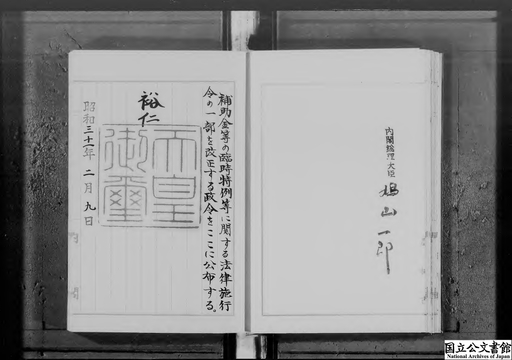 補助金等の臨時特例等に関する法律施行
令の一部を改正する政令をここに公布する。
裕仁
天皇
御璽
昭和三十一年二月九日
内閣総理大臣 鳩山一郎
国立公文書館
National Archives of Japan